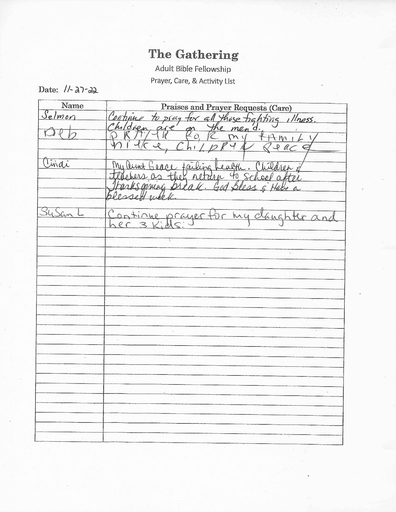 The Gathering
Adult Bible Fellowship
Prayer, Care, & Activity List
Date: 11-27-22
Name Praises and Prayer Requests (Care)
Selmon Continue to pray for all those fighting illness.
Children are on the mend.
Deb PRAYER FOR MY FAMILY
CHILDREN PEACE
Cindi My Aunt Grace failing health. Children &
teachers as they return to school after
Thanksgiving break. God bless & Have a
blessed week.
Susan L Continue prayer for my daughter and
her 3 kids.